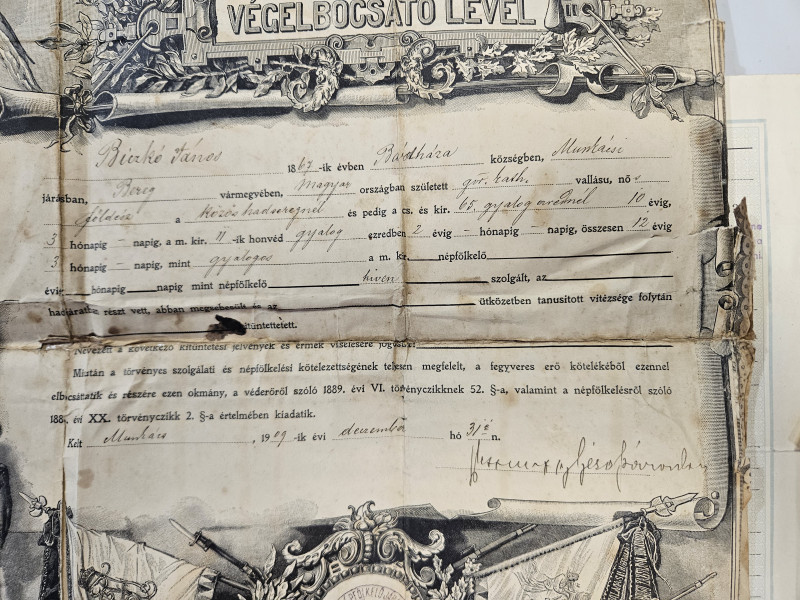 VÉGELBOCSÁTÓ LEVÉL
Biczkó János 1867-ik évben Bardháza községben, Munkácsi
járásban, Bereg vármegyében, Magyar országban született gör. kath. vallásu, nős
földész a közös hadseregnél és pedig a cs. és kir. 65. gyalog ezrednél 10 évig,
3 hónapig – napig, a m. kir. 11-ik honvéd gyalog ezredben 2 évig – hónapig – napig, összesen 12 évig
3 hónapig – napig, mint gyalogos a m. kir. népfölkelő
évig hónapig napig mint népfölkelő híven szolgált, az
hadjáratban részt vett, abban megsebesült és az ütközetben tanusított vitézsége folytán
kitüntettetett.
Nevezett a következő kitüntetési jelvények és érmek viselésére jogosult:
Miután a törvényes szolgálati és népfölkelési kötelezettségének teljesen megfelelt, a fegyveres erő kötelékéből ezennel
elbocsátatik és részére ezen okmány, a véderőről szóló 1889. évi VI. törvényczikknek 52. §-a, valamint a népfölkelésről szóló
1886. évi XX. törvényczikk 2. §-a értelmében kiadatik.
Kelt Munkács, 1909-ik évi deczember hó 31én.
NÉPFÖLKELŐ